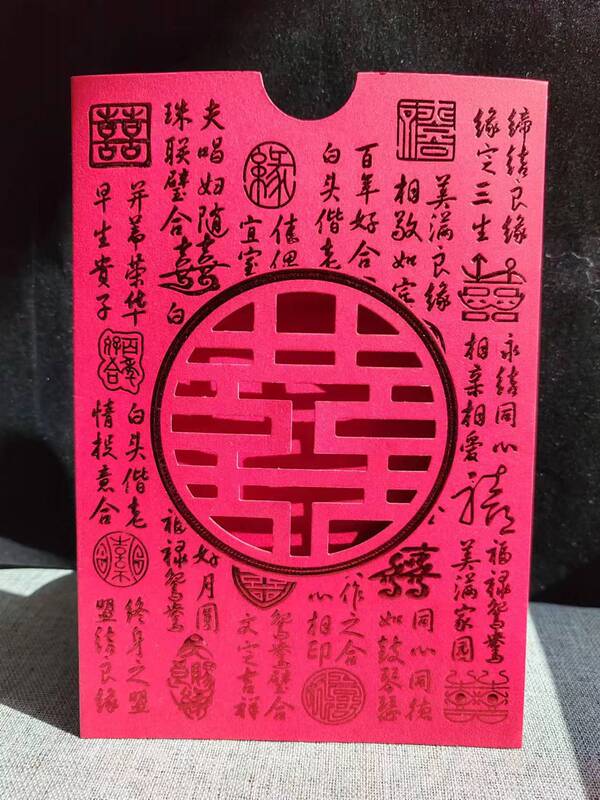 缔结良缘
缘定三生
美满良缘
相敬如宾
百年好合
白头偕老
缘
佳偶
宜室
夫唱妇随
珠联璧合
囍
白
并蒂荣华
早生贵子
永结同心
相亲相爱
禧
囍
百年好合
白头偕老
情投意合
福禄鸳鸯
美满家园
同心同德
如鼓琴瑟
作之合
心相印
鸳鸯璧合
文定吉祥
好月圆
福禄鸳鸯
终身之盟
盟结良缘